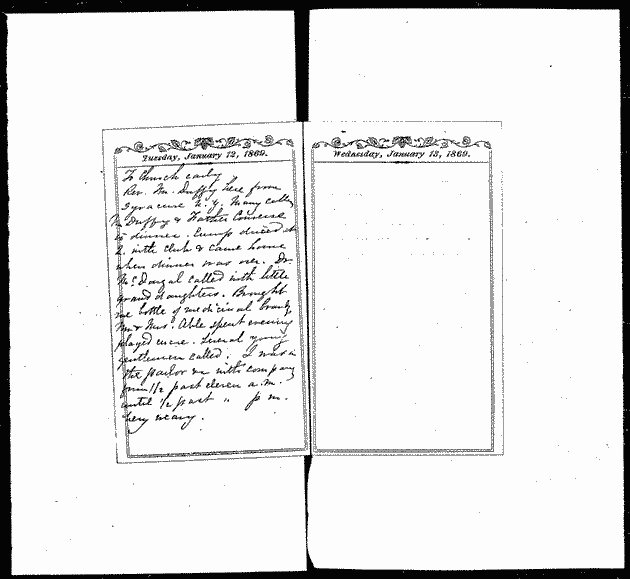 Tuesday, January 12, 1869.
To Church early
Rev. Mr. Duffy here from
Syracuse N. Y. Many calls
Mr Duffy & Father Converse
to dinner. Cump dined at
2. with Club & came home
when dinner was over. Dr.
McDougal called with little
grand daughters. Brought
me bottle of medicinal brandy,
Mr & Mrs. Able spent evening
played euchre. Several young
gentlemen called. I was in
the parlor with company
from 1/2 past eleven a.m.
until 1/2 past " p m.
very weary.
Wednesday, January 13, 1869.